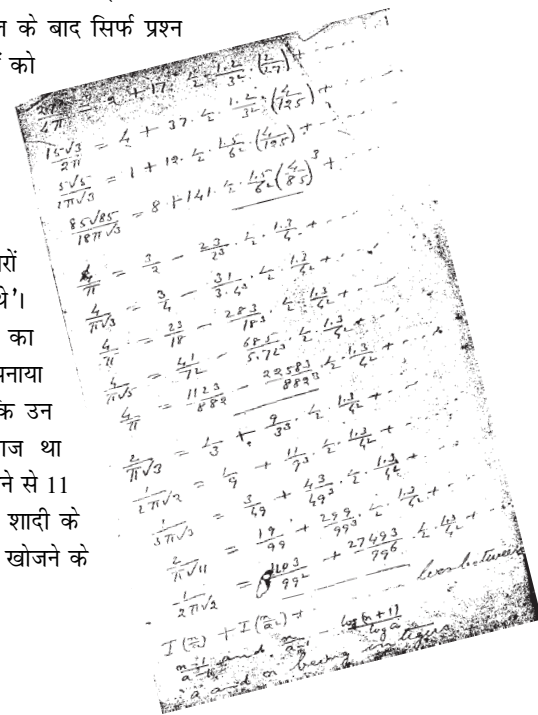 के बाद सिर्फ प्रश्न
को
थे'।
का
कि उन
ाज था
ने से 11
शादी के
खोजने के
27/4π = 2 + 17 · 1/2 · 1.2/3² · (2/27) + ...
15√3/2π = 4 + 37 · 1/2 · 1.2/3² · (4/125) + ...
5√5/2π√3 = 1 + 12 · 1/2 · 1.5/6² · (4/125) + ...
85√85/18π√3 = 8 + 141 · 1/2 · 1.5/6² (4/85)³ + ...
4/π = 3/2 − 23/2³ · 1/2 · 1.3/4² + ...
4/π√3 = 3/4 − 31/3.4³ · 1/2 · 1.3/4² + ...
4/π = 23/18 − 283/18³ · 1/2 · 1.3/4² + ...
4/π√5 = 41/72 − 685/5.72³ · 1/2 · 1.3/4² + ...
4/π = 1123/882 − 22583/882³ · 1/2 · 1.3/4² + ...
2/π√3 = 1/3 + 9/3³ · 1/2 · 1.3/4² + ...
1/2π√2 = 1/9 + 11/9³ · 1/2 · 1.3/4² + ...
1/3π√3 = 3/49 + 43/49³ · 1/2 · 1.3/4² + ...
2/π√11 = 19/99 + 299/99³ · 1/2 · 1.3/4² + ...
1/2π√2 = 1103/99² + 27493/99⁶ · 1/2 · 1.3/4² + ...
I(n/a) + I(n/a²) + lies between
n-1/a-1 and n/a-1 − log(n+1)/log a
a and n being integers